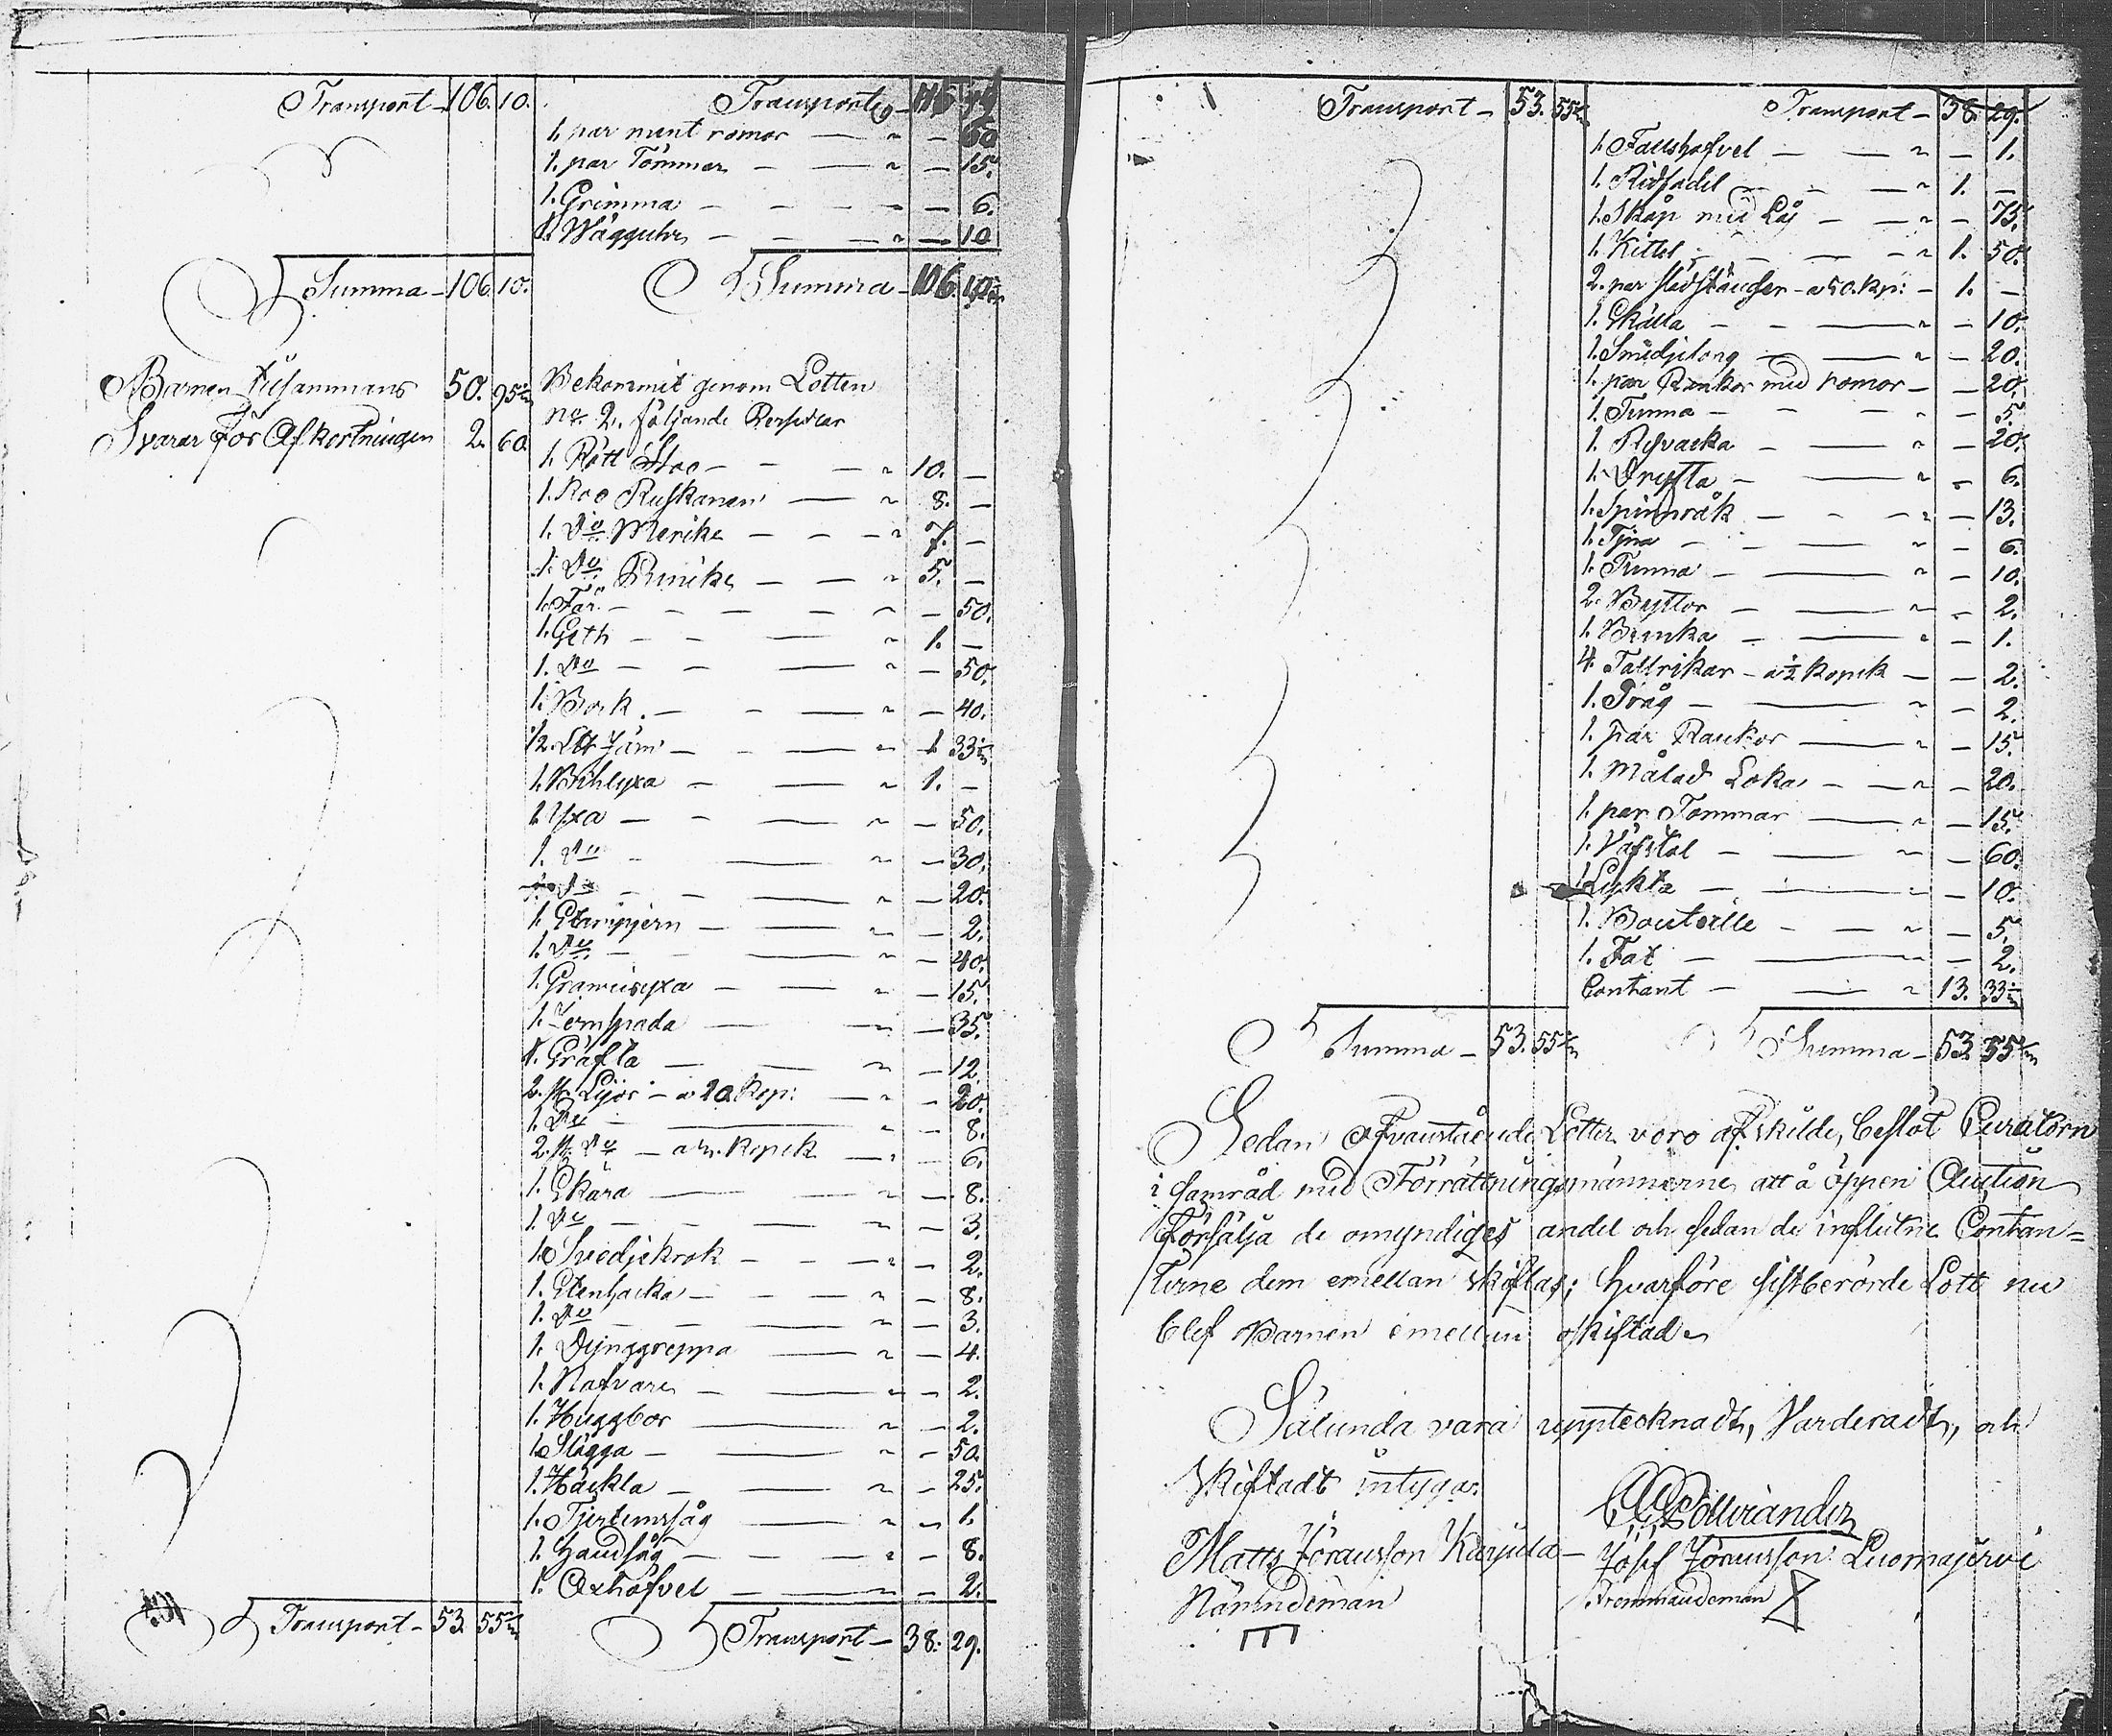 Transport 106. 10.
Summa 106. 10.
Barnen tillsammans 50. 95
Svarar för Afkortningen 2. 60.
Transport 53. 55
Transport
1. par munt romor — 60
1. par Tömmar — 15.
1. Grimma — 6.
1. Wägguhr — 10
Summa 106.
Bekommit genom Lotten
No. 2. följande Persedlar
1. Rött Stoo 10. —
1. Koo Ruskanen 8. —
1. Do Merike 7. —
1. Do 5. —
1. Får — 50.
1. Geth 1. —
1. Do — 50.
1. Bock — 40.
1/2. 1 33
1. Bihlyxa 1. —
1. Yxa — 50.
1. Do — 30.
— 20.
1. — 2.
1. Do — 40.
1. — 15.
1. Jernspada — 35.
1. Gräfta — 12
2. st. Lijor a 20. Kop: — 20.
1. Do — 8.
2. st. Do a kopek — 6.
1. Skära — 8.
1. Do — 3.
1. Svedjekrok — 2.
1. Stenhacka — 8.
1. Do — 3.
1. Dynggreppa — 4.
1. Nafvare — 2.
1. Huggbor — 2.
1. Slägga — 50.
1. Häckla — 25.
1. — 1.
1. Handsåg — 8.
1. Oxhöfvel — 2.
Transport 38. 29.
Transport 53. 55
Summa 53. 55
Transport 38. 29.
1. Falshöfvel — 1.
1. Ridsadel 1. —
1. Skåp med Lås — 75.
1. Kittel 1. 50.
2. par a 50. Kp: 1. —
1. Skälla — 10.
1. Smidjetong — 20.
1. par Rankor med romor — 20.
1. Tunna — 5.
1. Rysvacka — 20.
1. Dryfta — 6.
1. Spinnråk — 13.
1. Tjna — 6.
1. Tunna — 10.
2. Byttor — 2.
1. Bunka — 1.
4. Tallrikar a 1/2 kopek — 2.
1. Tråg — 2.
1. par Rankor — 15.
1. Målad Loka — 20.
1. par Tömmar — 15.
1. Väfstol — 60.
1. Lykta — 10.
1. Bouteille — 5.
1. Fat — 2.
Contant 13. 33
Summa 53. 55
Sedan ofvanstående Lotter voro afskilde, beslöt Curatorn
i samråd med Förrättningsmännerne att å öppen Auction
försälja de omyndiges andel och sedan de influtne Contan=
terne dem emellan skiftas; hvarföre sistberörde Lott nu
blef Barnen emellan oskiftad.
Sålunda vara upptecknadt, Värderadt, och
skiftadt intygar
Matts Jöransson Karjula
Nämndeman
Josef Jöransson Luomajervi